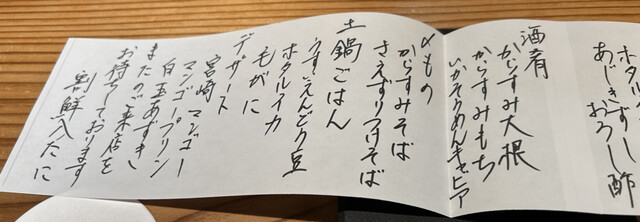 ホタル
あじきずし
おろし酢
酒肴
からすみ大根
からすみもち
いかそうめんキャビア
〆もの
からすみそば
さえずりつけそば
土鍋ごはん
うすいえんどう豆
ホタルイカ
毛がに
デザート
宮崎マンゴー
マンゴープリン
白玉あずき
またのご来店を
お待ちしております
割鮮入たに